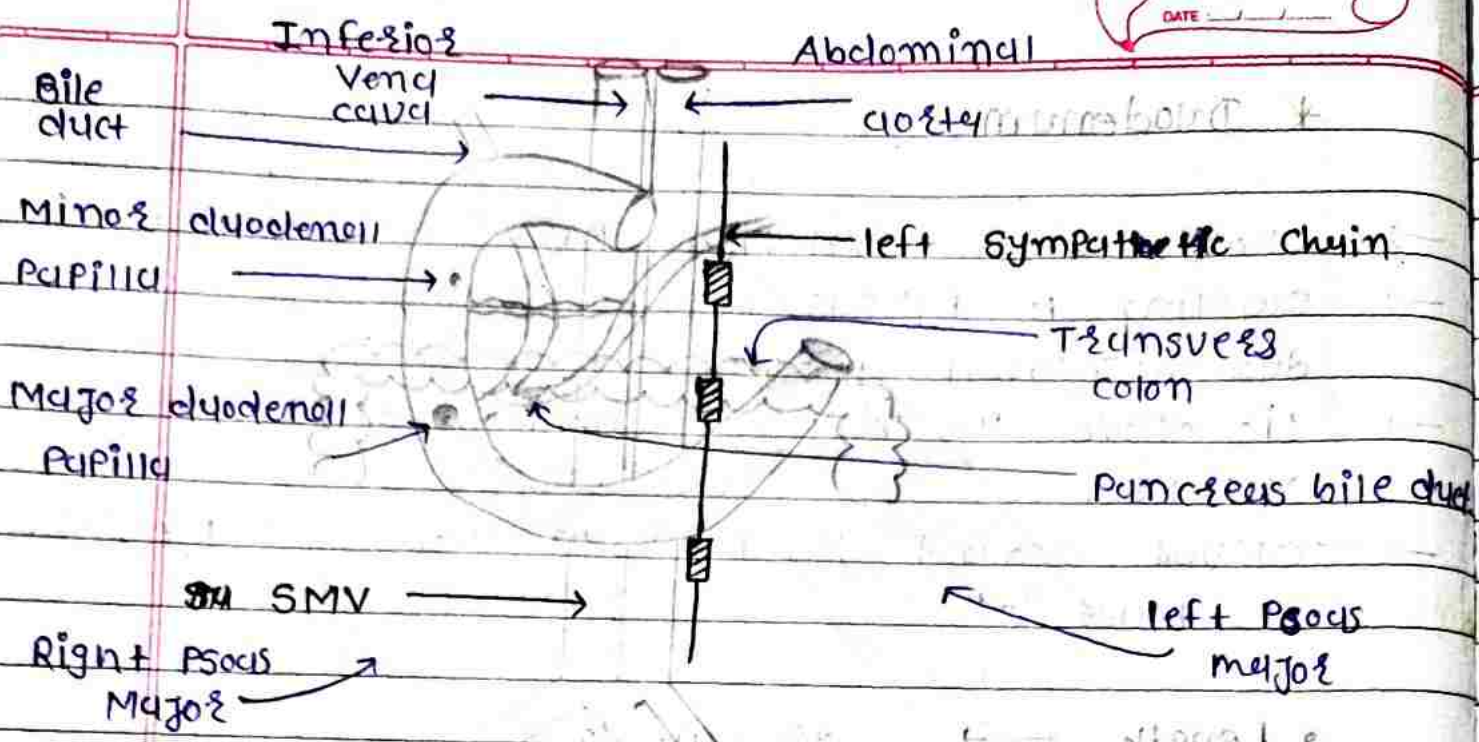 DATE
Inferior
Vena
cava
Abdominal
aorta
Bile
duct
Minor duodenall
Papilla
left Sympathetic Chain
Transvers
colon
Major duodenall
Papilla
Pancreas bile duct
SMV
left Psoas
major
Right Psoas
Major